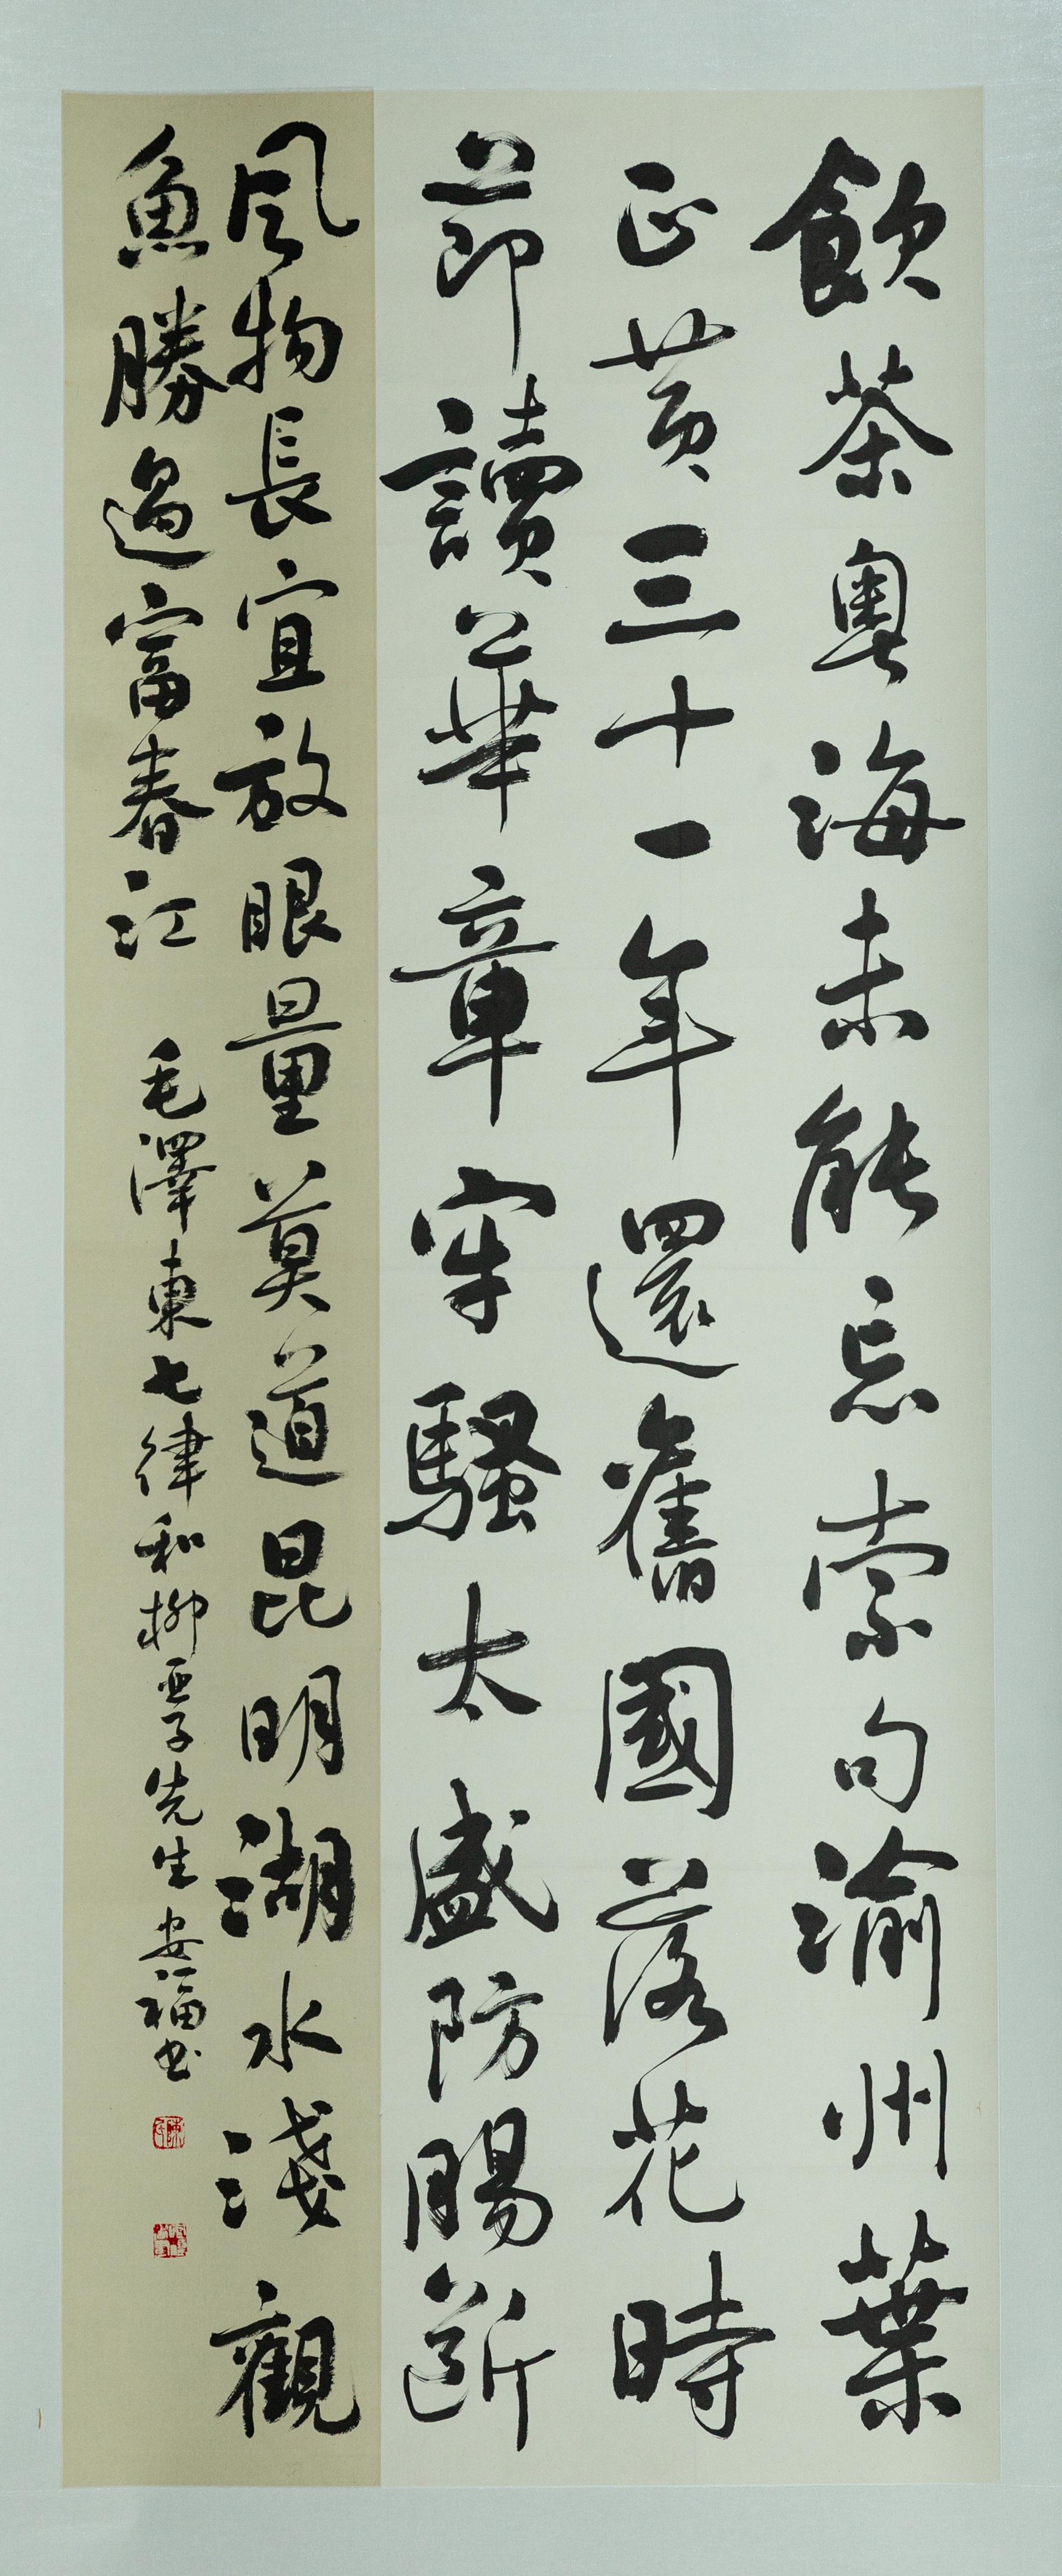 飲茶粵海未能忘索句渝州葉
正黃三十一年還舊國落花時
節讀華章牢騷太盛防腸斷
風物長宜放眼量莫道昆明湖水淺觀
魚勝過富春江 毛澤東七律和柳亞子先生 安福书